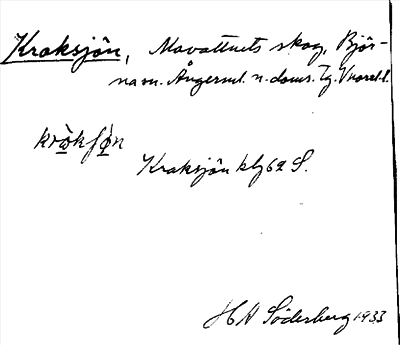 Kraksjön, Movattnets skog, Björ-
na sn. Ångerml. n. doms. Tg. Vnorrl.l.
kràksjön
Kraksjön klg 62 S.
H A Söderberg 1933